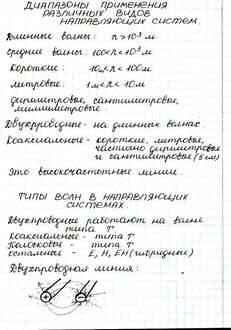 ДИАПАЗОНЫ ПРИМЕНЕНИЯ
РАЗЛИЧНЫХ ВИДОВ
НАПРАВЛЯЮЩИХ СИСТЕМ.
Длинные волны: λ>10³ м
Средние волны: 100<λ<10³ м
Короткие: 10м<λ<100м
метровые: 1м<λ<10м
дециметровые, сантиметровые,
миллиметровые.
Двухпроводные - на длинных волнах.
Коаксиальные - короткие, метровые,
частично дециметровые
и сантиметровые (5см)
Это высокочастотные линии.
ТИПЫ ВОЛН В НАПРАВЛЯЮЩИХ
СИСТЕМАХ.
Двухпроводные работают на волне
типа Т.
Коаксиальные - типа Т
Полосковые - типа Т
остальные - Е, Н, ЕН (гибридные)
Двухпроводная линия: